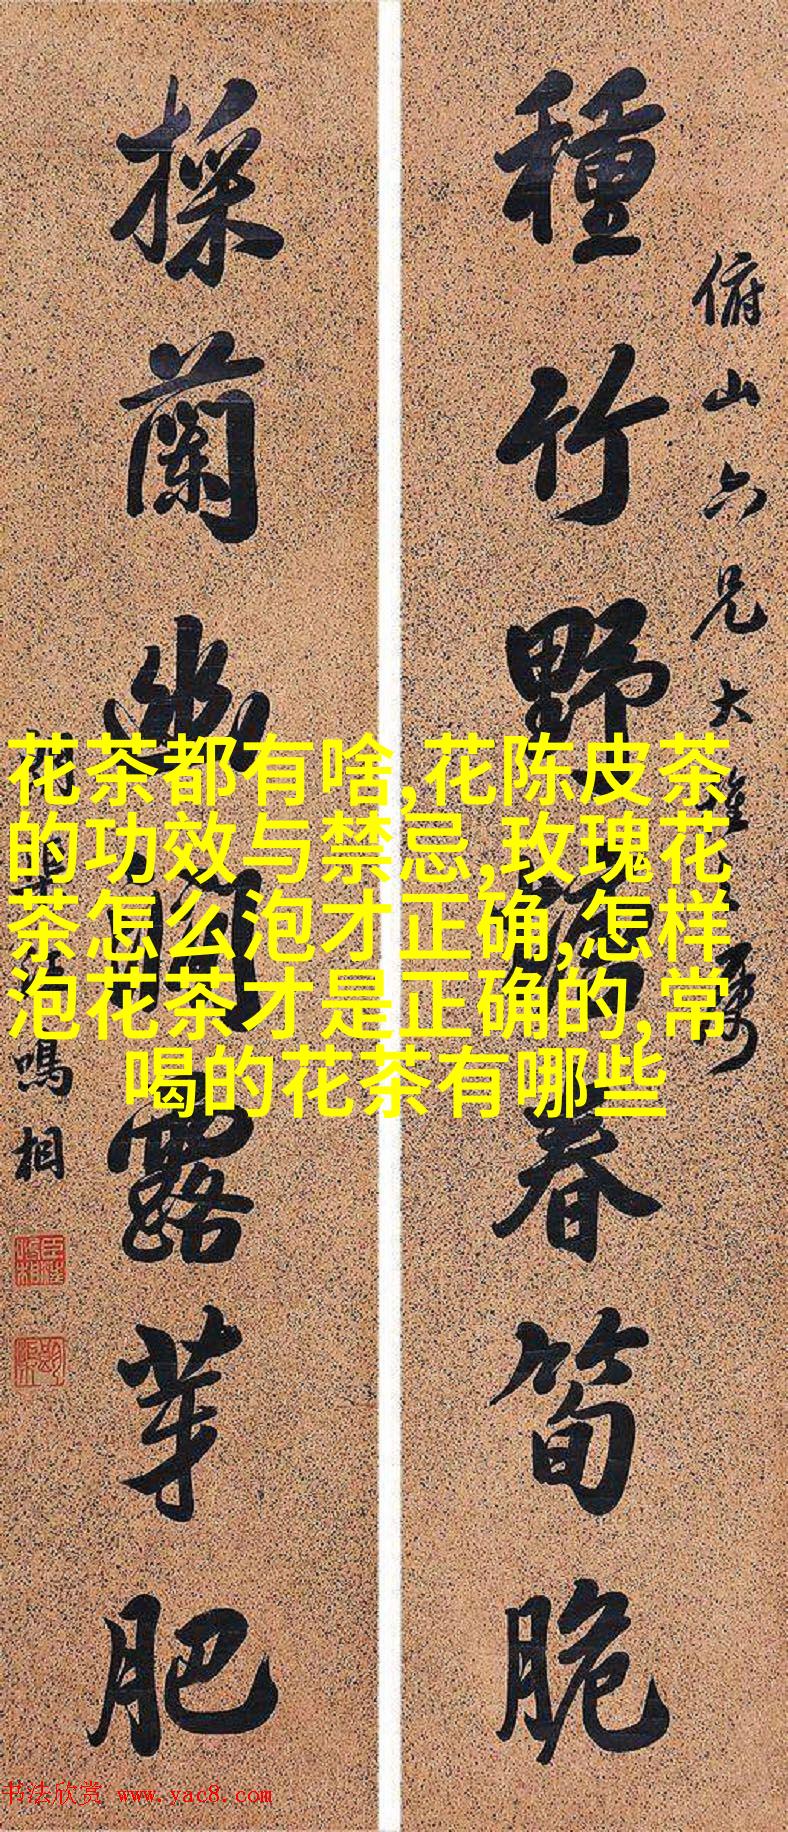 俯山六兄大雅之屬
種竹野
春筍脆
採蘭幽澗露芽肥
鳴相
花茶都有啥,花陈皮茶
的功效与禁忌,玫瑰花
茶怎么泡才正确,怎样
泡花茶才是正确的,常
喝的花茶有哪些
书法欣赏 www.yac8.com